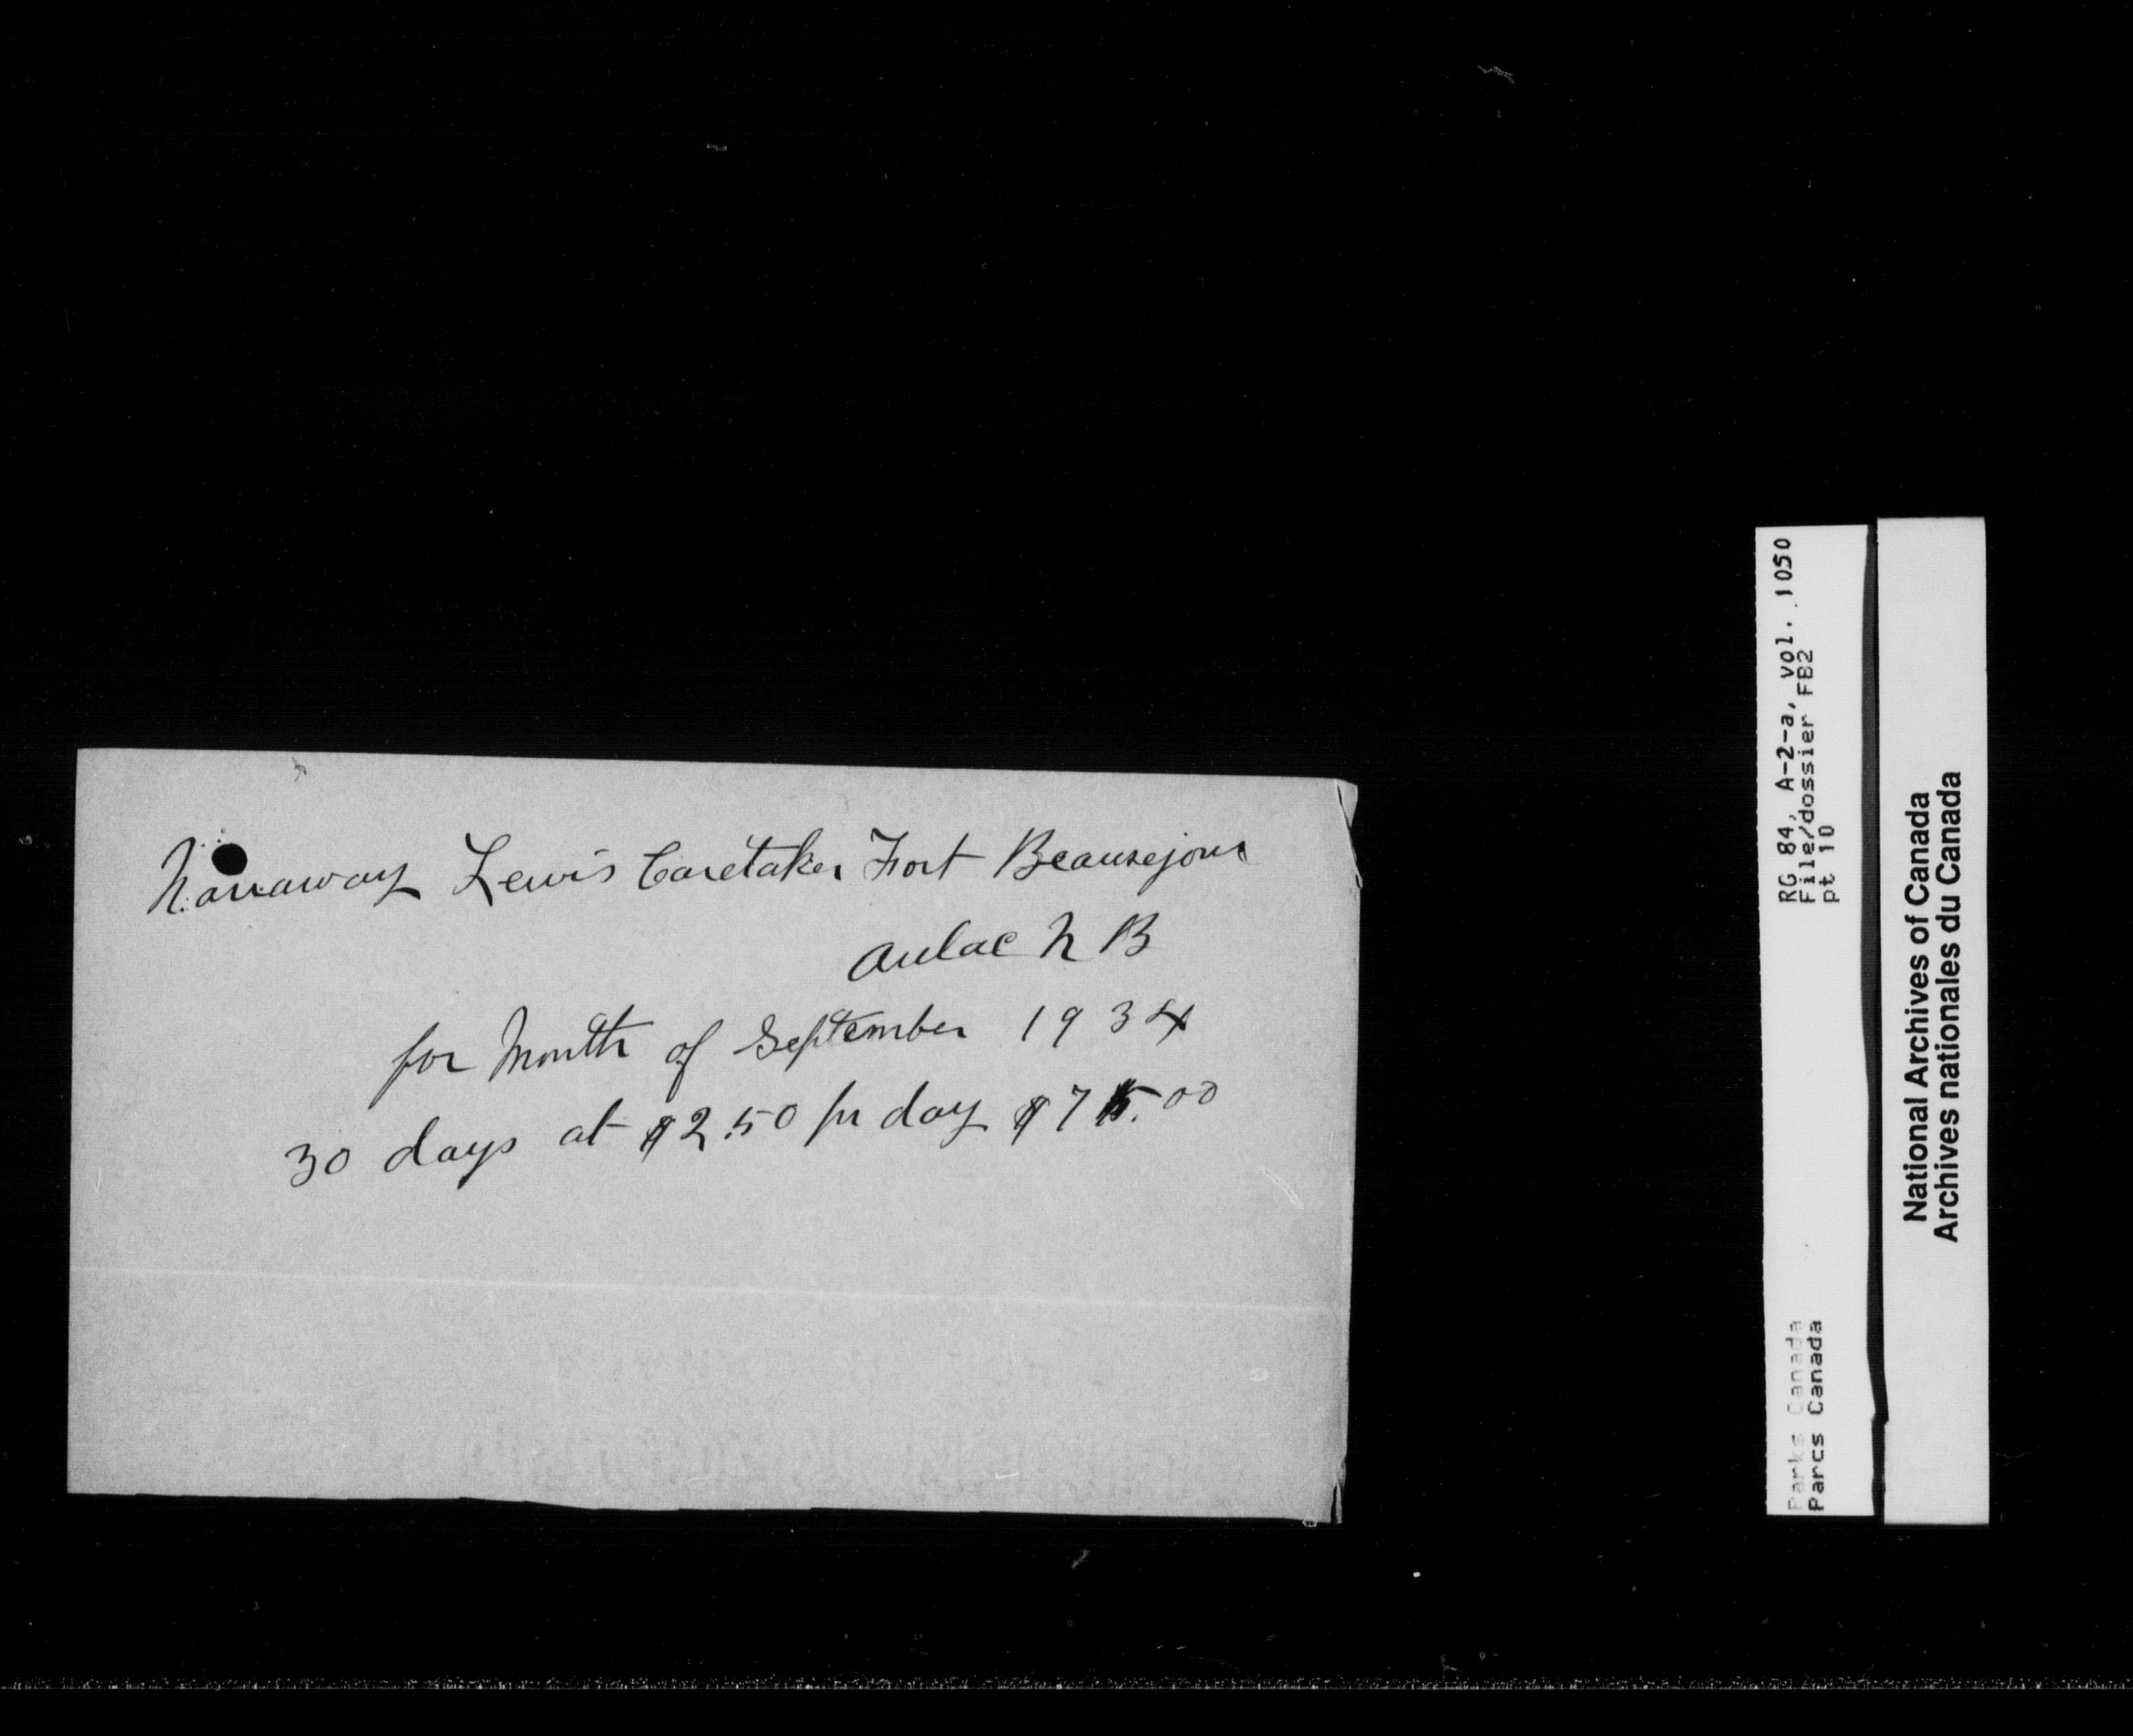 Nanaway Lewis Caretaker Fort Beausejour
Aulac N B
for Month of September 1934
30 days at $2.50 per day $75.00
RG 84, A-2-a, vol. 1050
File/dossier FB2
pt 10
Parks Canada
Parcs Canada
National Archives of Canada
Archives nationales du Canada